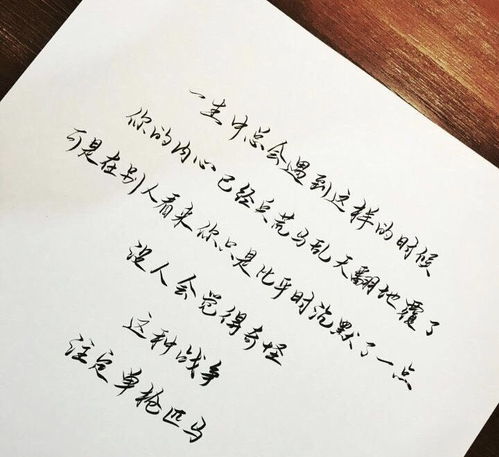 一生中总会遇到这样的时候
你的内心已经兵荒马乱天翻地覆了
可是在别人看来你只是比平时沉默了一点
没人会觉得奇怪
这种战争
注定单枪匹马